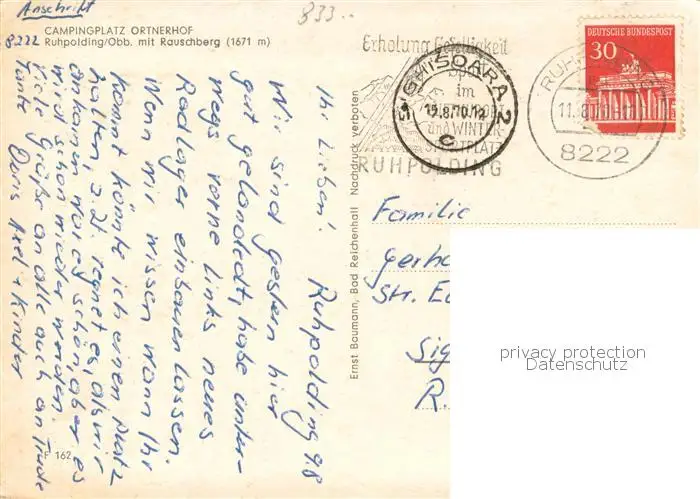 Anschrift
8222
CAMPINGPLATZ ORTNERHOF
Ruhpolding/Obb. mit Rauschberg (1671 m)
833..
Erholung Geselligkeit
Sport
im
und WINTER-
SPORTPLATZ
RUHPOLDING
SIGHIȘOARA 2
15.8.70.12
C
RUHP
11.8.70
8222
DEUTSCHE BUNDESPOST
30
Ihr Lieben! Ruhpolding 9.8
Wir sind gestern hier
gut gelandedt, habe unter-
wegs vorne links neues
Radlager einbauen lassen.
Wann wir wissen wann Ihr
kommt könnte ich einen Platz
halten z.Zt regnet es, als wir
ankamen war es schön, aber es
wird schon wieder werden.
Viele Grüße an alle auch an Trude
Tante Axel + Kinder
F 162
Ernst Baumann, Bad Reichenhall Nachdruck verboten
Familie
Gerha
Str. Ec
Sig
R.
privacy protection
Datenschutz